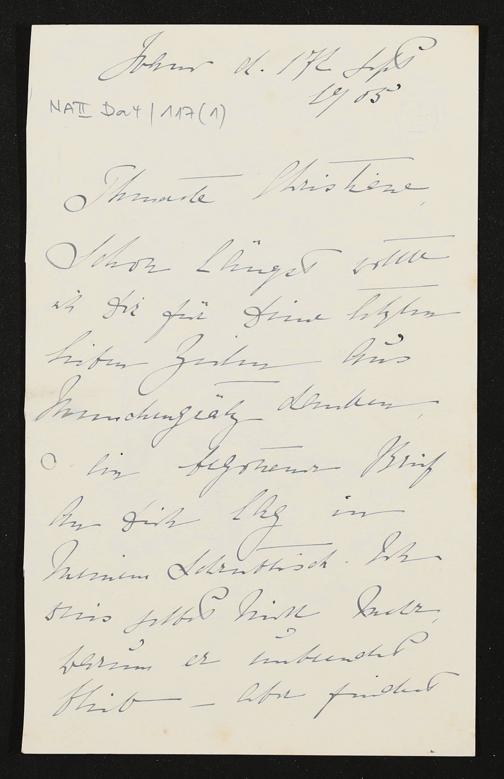 d. 17t Sept
1905
NA II Da4/117(1)
Theuerste Christiane,
Schon längst wollte
ich Dir für Deine letzten
lieben Zeilen aus
danken,
ein begonnener Brief
an Dich lag in
meinem Schreibtisch. Ich
weis selbst nicht mehr,
warum er unbeendet
blieb – aber findest